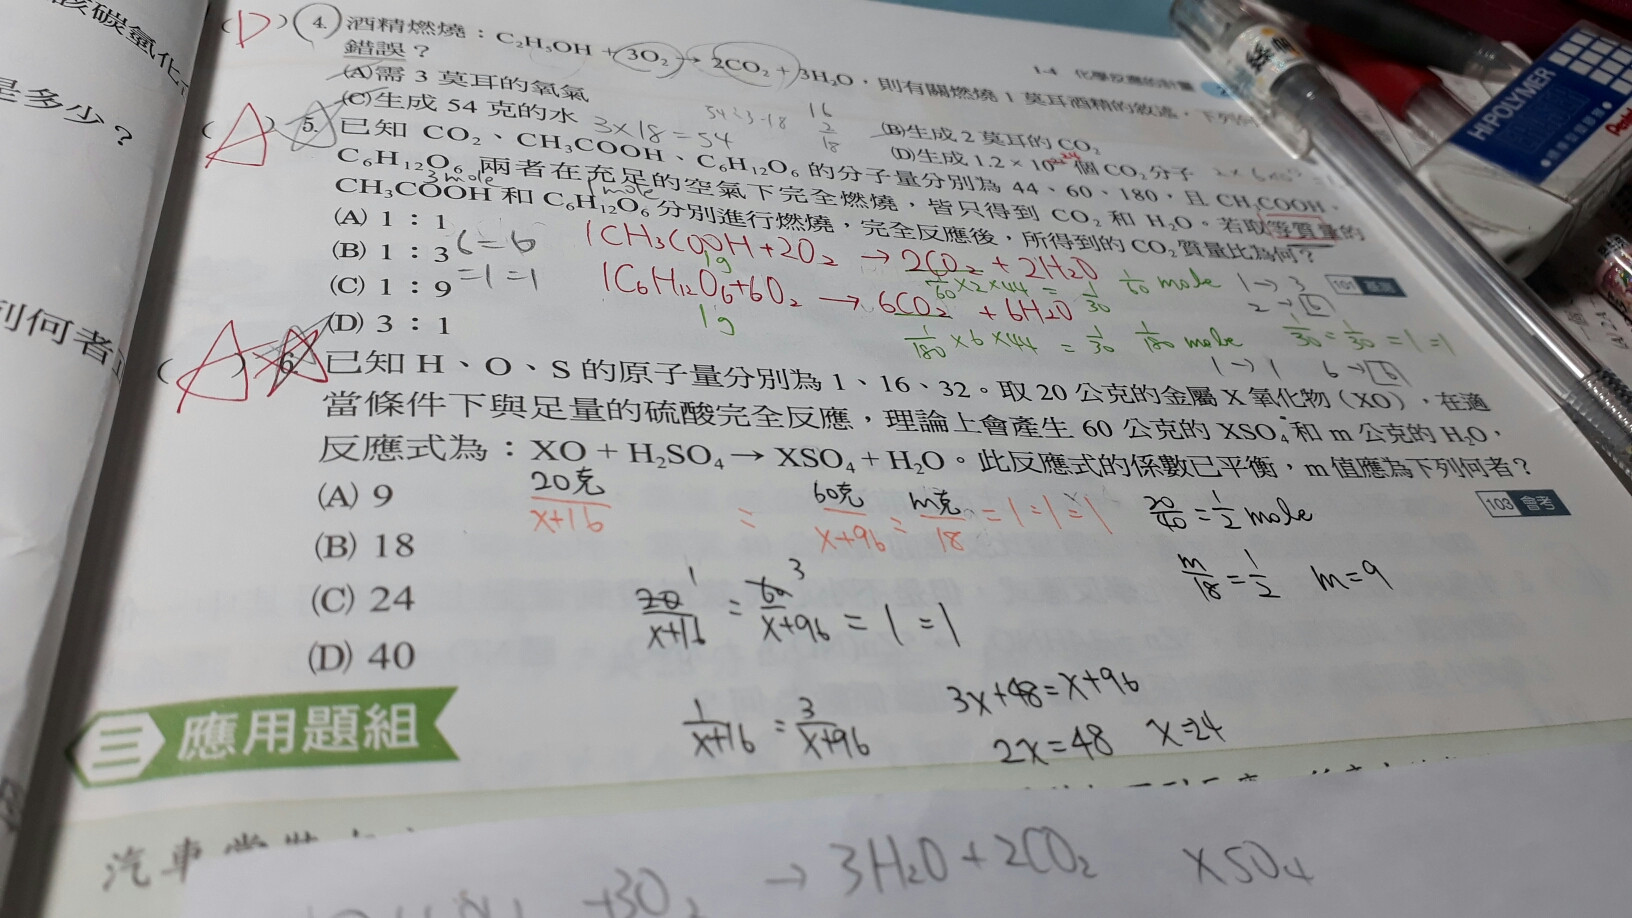 亥碳氫化
是多少？
列何者
1-4 化學反應的計量
(D) 4. 酒精燃燒：C₂H₅OH + 3O₂ → 2CO₂ + 3H₂O，則有關燃燒 1 莫耳酒精的敘述，下列何
錯誤？
(A)需 3 莫耳的氧氣
(B)生成 2 莫耳的 CO₂
(C)生成 54 克的水
3×18=54
54÷3=18
16
2
18
(D)生成 1.2 × 10²⁴ 個 CO₂ 分子
(A) 5. 已知 CO₂、CH₃COOH、C₆H₁₂O₆ 的分子量分別為 44、60、180，且 CH₃COOH、
C₆H₁₂O₆ 兩者在充足的空氣下完全燃燒，皆只得到 CO₂ 和 H₂O。若取等質量的
3mole
1mole
CH₃COOH 和 C₆H₁₂O₆ 分別進行燃燒，完全反應後，所得到的 CO₂ 質量比為何？
101 基測
(A) 1：1
(B) 1：3
6=6
(C) 1：9
=1=1
(D) 3：1
1CH₃COOH+2O₂ → 2CO₂ + 2H₂O
1g
1/60 ×2×44 = 1/30
1/60 mole
1→3
2→6
1C₆H₁₂O₆+6O₂ → 6CO₂ + 6H₂O
1g
1/180 ×6×44 = 1/30
1/180 mole
1/30 = 1/30 =1=1
1→1
6→6
(A) 6. 已知 H、O、S 的原子量分別為 1、16、32。取 20 公克的金屬 X 氧化物（XO），在適
當條件下與足量的硫酸完全反應，理論上會產生 60 公克的 XSO₄ 和 m 公克的 H₂O，
反應式為：XO + H₂SO₄ → XSO₄ + H₂O。此反應式的係數已平衡，m 值應為下列何者？
103 會考
(A) 9
(B) 18
(C) 24
(D) 40
20克/x+16 = 60克/x+96 = m克/18 =1=1=1
20/40 = 1/2 mole
m/18 = 1/2 m=9
1 3
20/x+16 = 60/x+96 =1=1
1/x+16 = 3/x+96
3x+48=x+96
2x=48 x=24
三 應用題組
汽車
+3O₂ → 3H₂O+2CO₂ XSO₄
HIPOLYMER